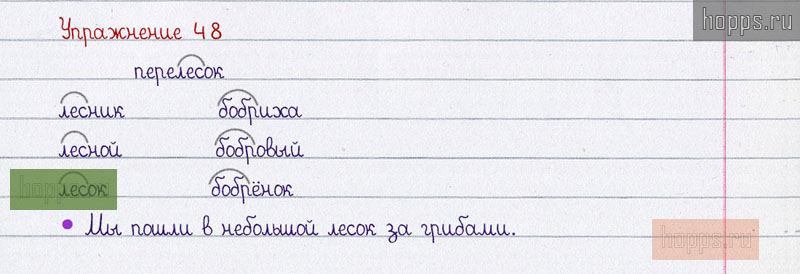 hopps.ru
Упражнение 48
перелесок
лесник бобриха
лесной бобровый
лесок бобрёнок
• Мы пошли в небольшой лесок за грибами.
hopps.ru